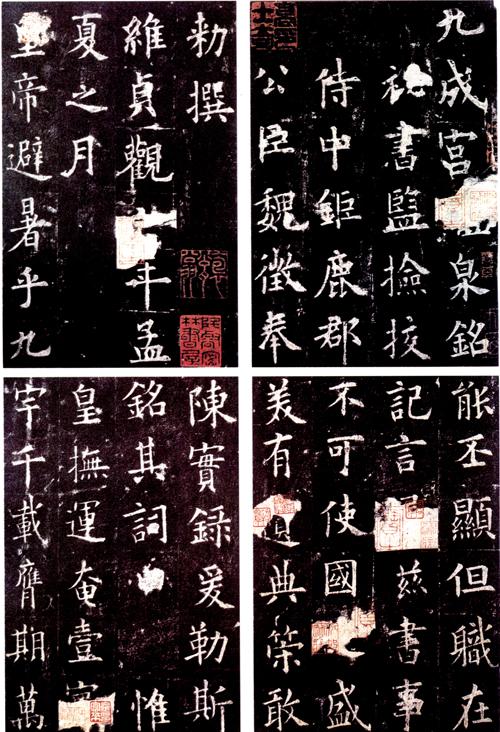 九成宮泉銘
秘書監撿挍
侍中鉅鹿郡
公臣魏徵奉
勑撰
維貞觀年孟
夏之月
皇帝避暑乎九
能丕顯但職在
記言茲書事
不可使國盛
美有遺典策敢
陳實録爰勒斯
銘其詞惟
皇撫運奄壹寰
宇千載膺期萬